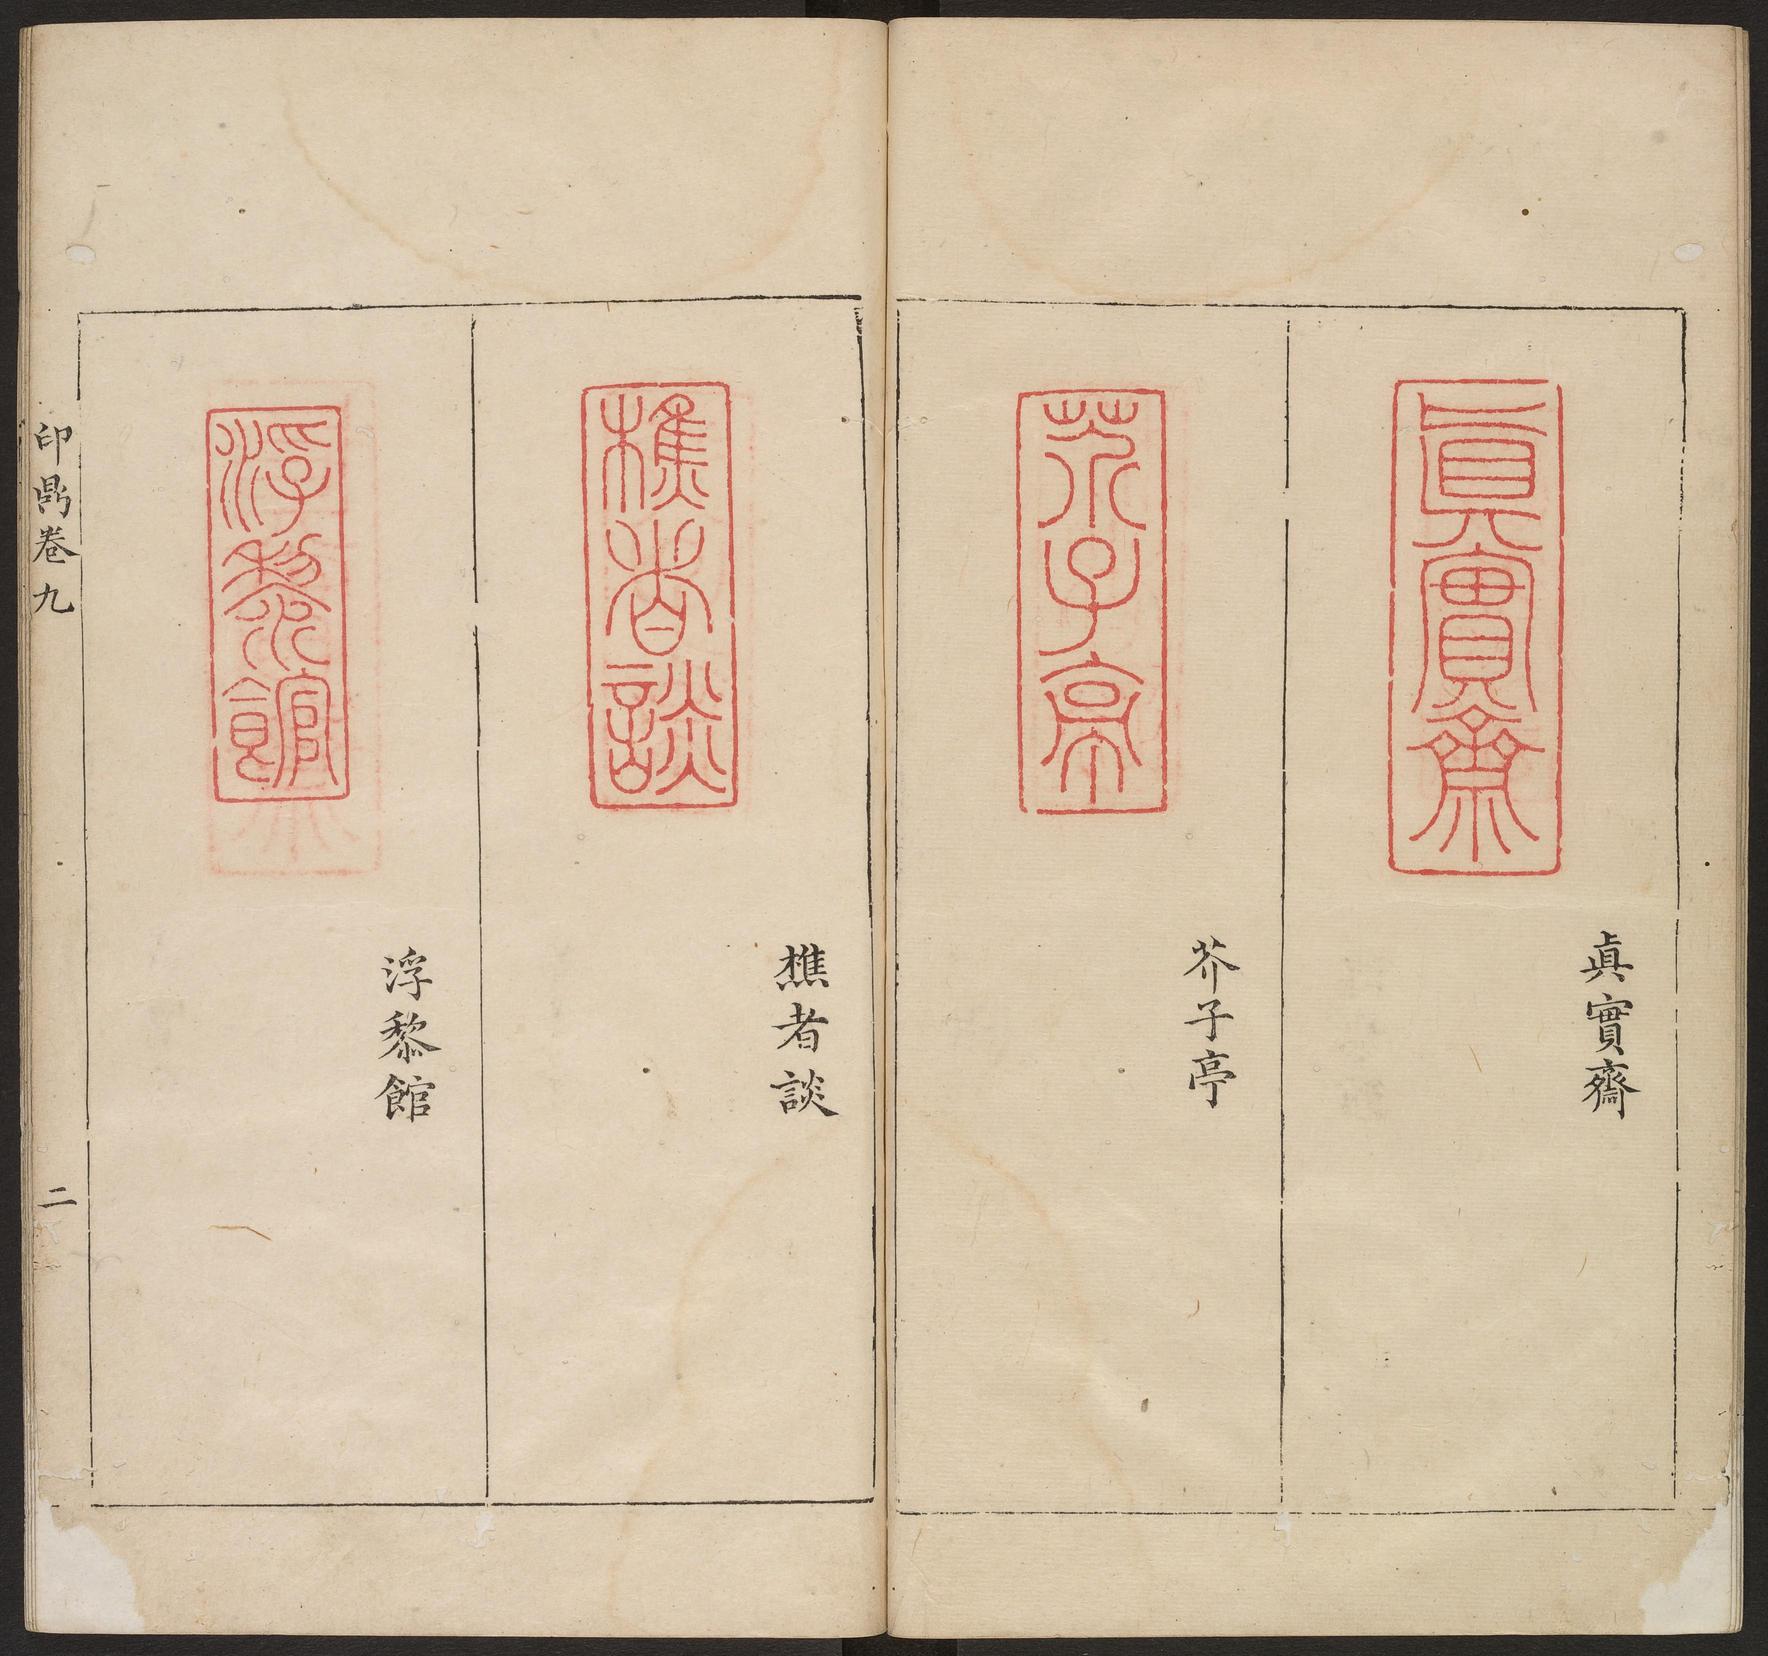 眞實齋
眞實齋
芥子亭
芥子亭
樵者談
樵者談
浮黎館
浮黎館
印鼎卷九
二